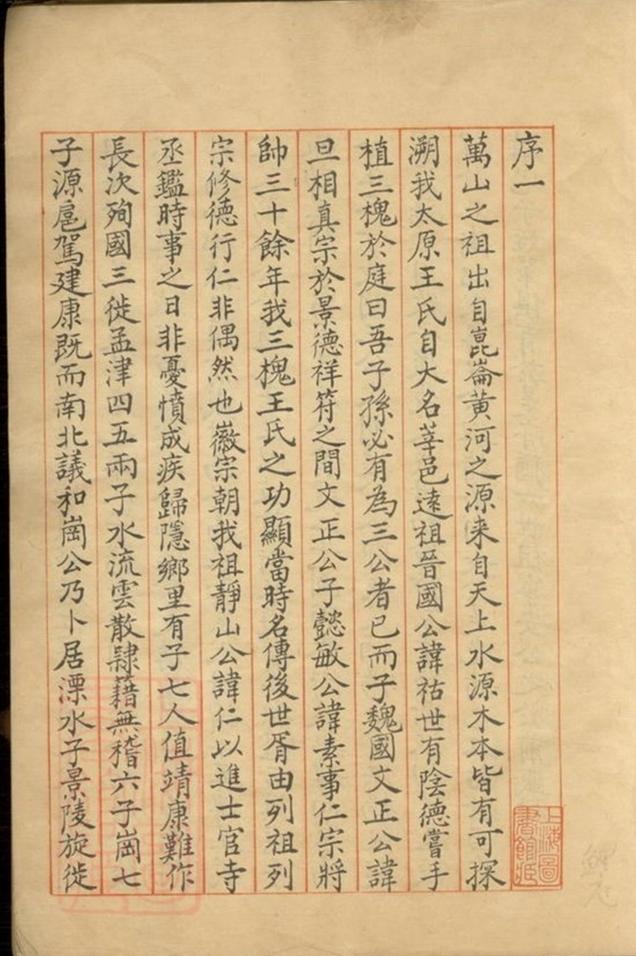 序一
萬山之祖出自崑崙黃河之源来自天上水源木本皆有可探
溯我太原王氏自大名莘邑遠祖晉國公諱祜世有陰德嘗手
植三槐於庭曰吾子孫必有為三公者已而子魏國文正公諱
旦相真宗於景德祥符之間文正公子懿敏公諱素事仁宗將
帥三十餘年我三槐王氏之功顯當時名傳後世胥由列祖列
宗修德行仁非偶然也徽宗朝我祖靜山公諱仁以進士官寺
丞鑑時事之日非憂憤成疾歸隱鄉里有子七人值靖康難作
長次殉國三徙孟津四五兩子水流雲散隸藉無稽六子崗七
子源扈駕建康既而南北議和崗公乃卜居溧水子景陵旋徙
上海圖
書館藏